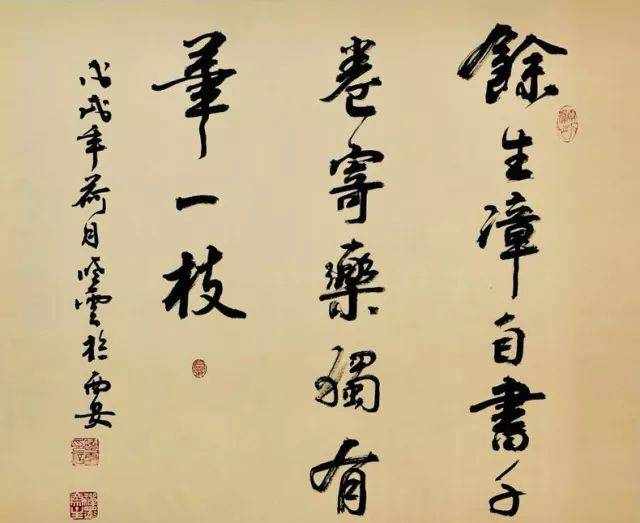 餘生漳自書千
卷寄藥獨有
華一枝
戊戌年荷月雲於西安